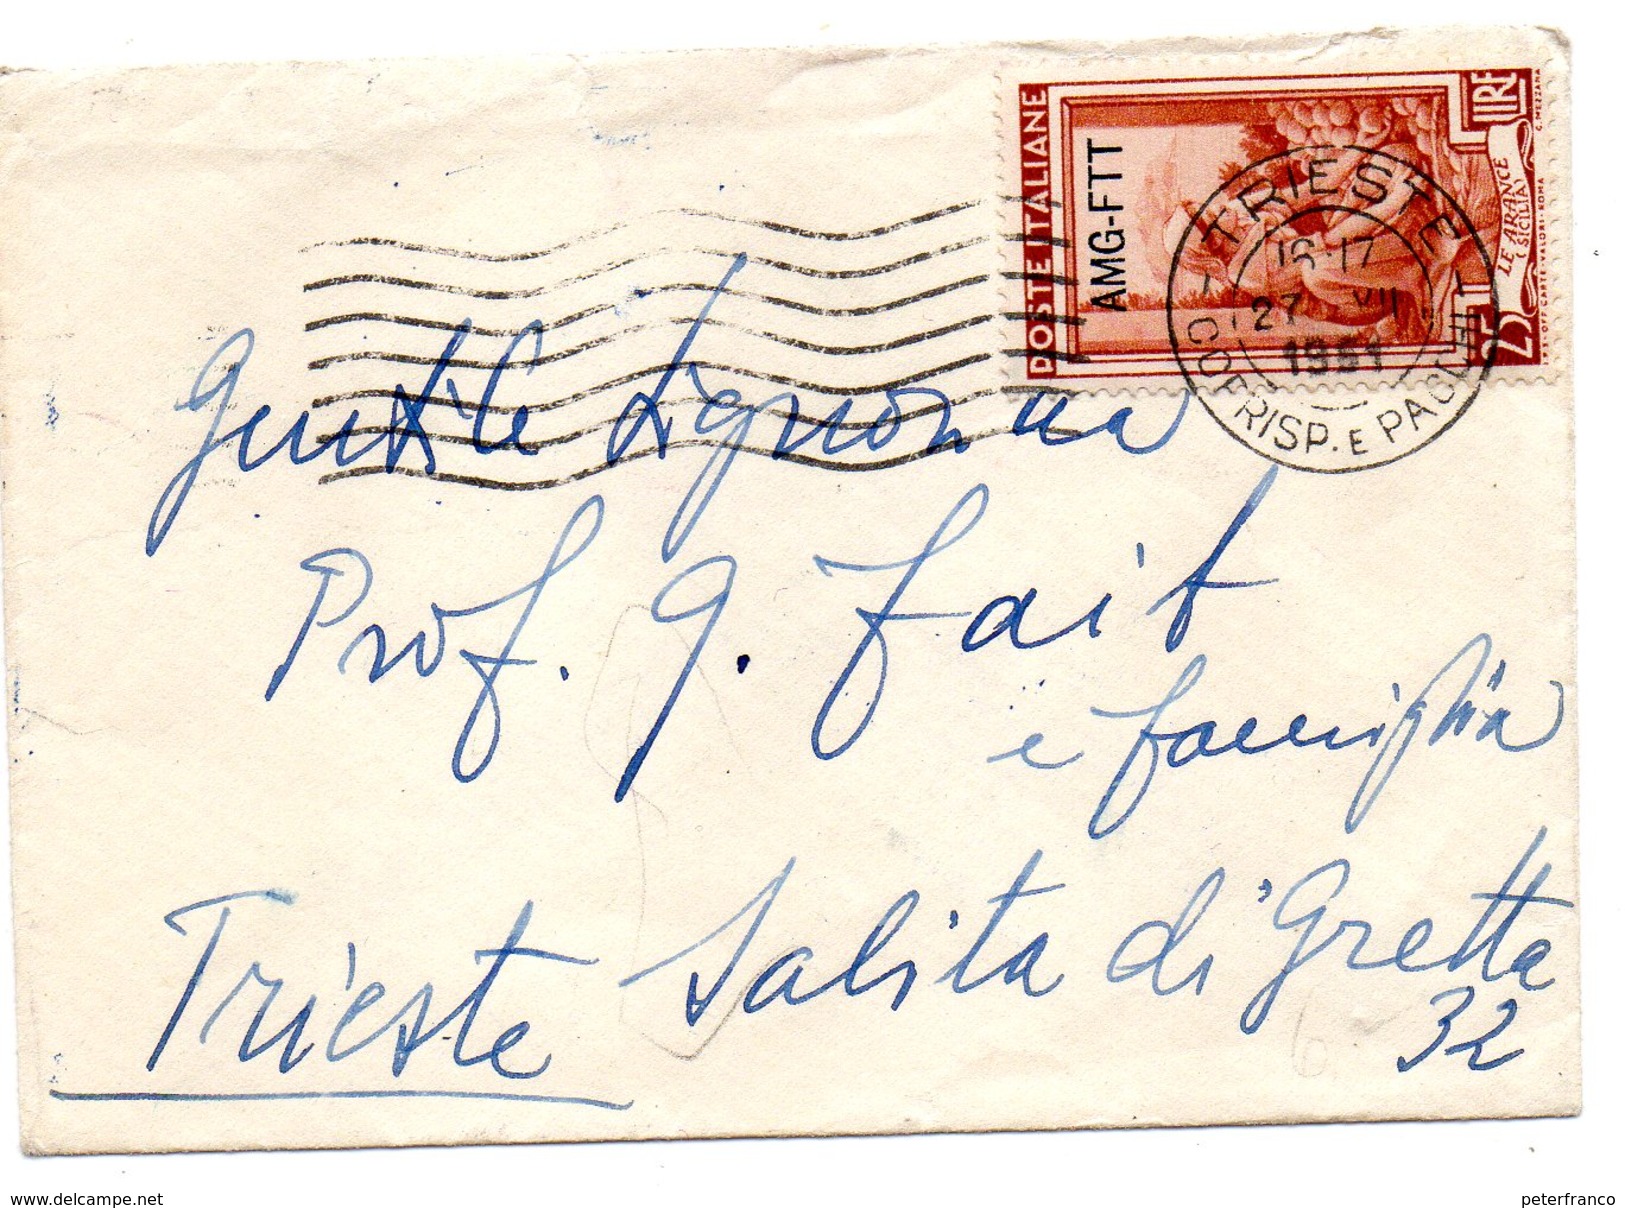 POSTE ITALIANE
AMG-FTT
LIRE
25
LE ARANCE
(SICILIA)
G. MEZZANA
IST. POL. OFF. CARTE-VALORI-ROMA
TRIESTE
16-17
27 VII
1951
CORRISP. E PACCHI
Gentile Signorina
Prof. G. Fait
e famiglia
Trieste Salita di Gretta
32
www.delcampe.net
peterfranco